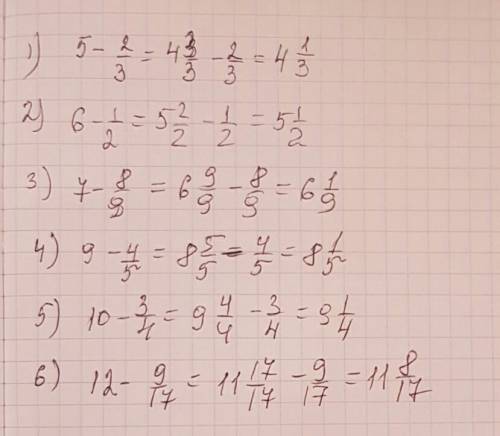 1) 5 - 2/3 = 4 3/3 - 2/3 = 4 1/3
2) 6 - 1/2 = 5 2/2 - 1/2 = 5 1/2
3) 7 - 8/9 = 6 9/9 - 8/9 = 6 1/9
4) 9 - 4/5 = 8 5/5 - 4/5 = 8 1/5
5) 10 - 3/4 = 9 4/4 - 3/4 = 9 1/4
6) 12 - 9/17 = 11 17/17 - 9/17 = 11 8/17